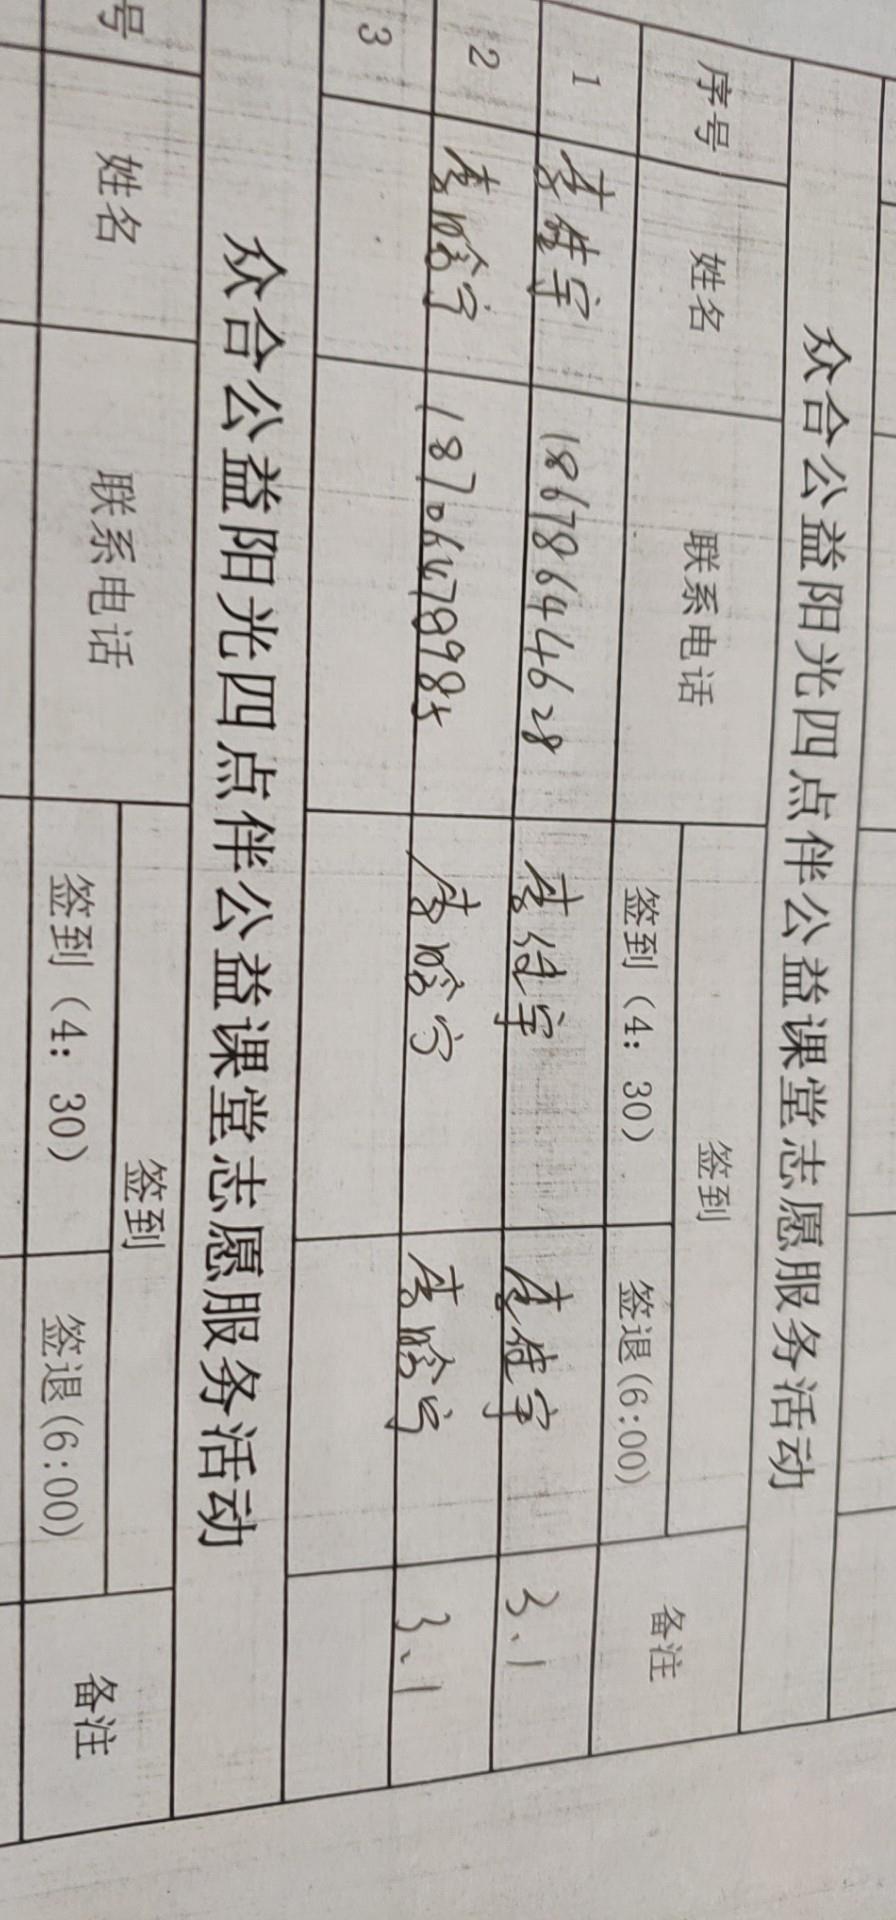 众合公益阳光四点伴公益课堂志愿服务活动
序号 姓名 联系电话 签到 备注
签到（4：30） 签退(6:00)
1 李佳宇 18678644628 李佳宇 李佳宇 3.1
2 李晗宁 18706478985 李晗宁 李晗宁 3.1
3
众合公益阳光四点伴公益课堂志愿服务活动
号 姓名 联系电话 签到 备注
签到（4：30） 签退(6:00)